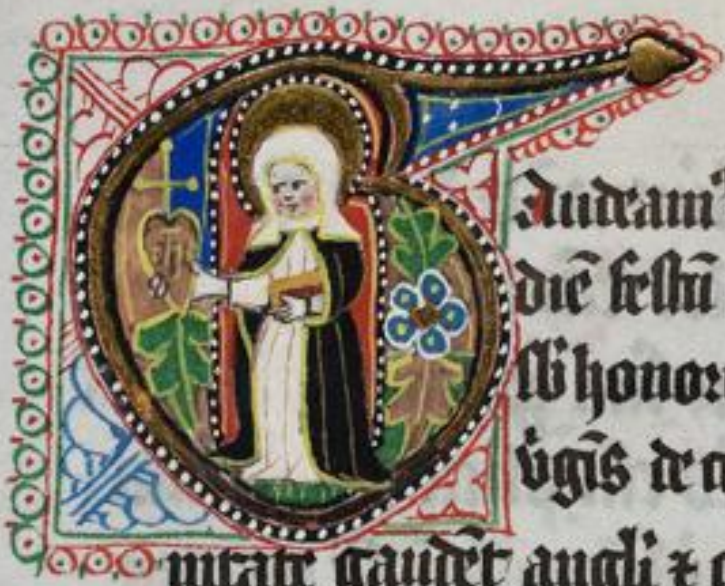 GAudeamꝰ
diē festū
sb̄ honor
v̄gīs de c
nitate gaudēt angli ⁊